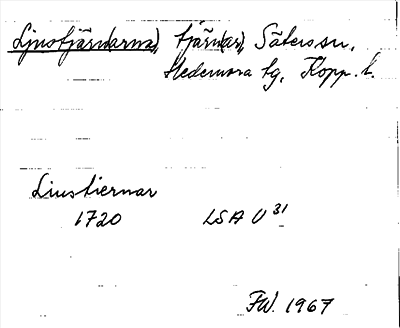 Ljustjärn(arna), tjärn(ar), Säters sn,
Hedemora tg, Kopp. l.
Liustiernar
1720 LSA U 31
F.W. 1967